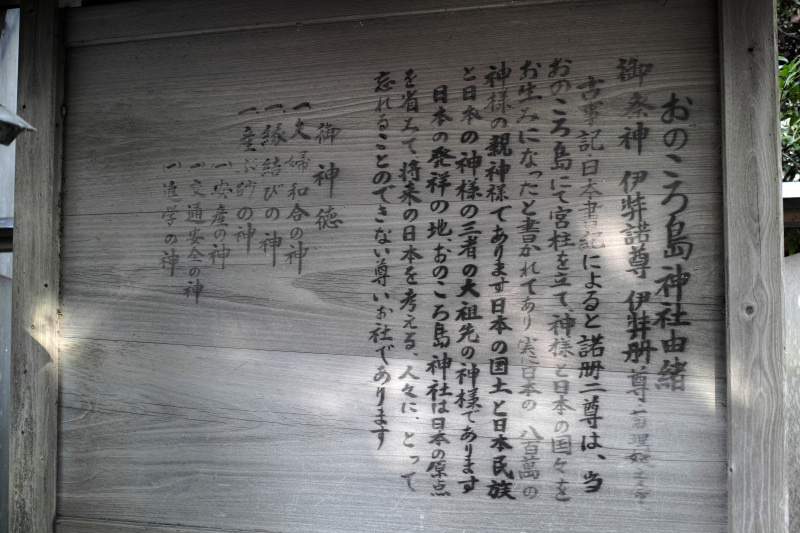 おのころ島神社由緒
御祭神 伊弉諾尊 伊弉册尊
古事記日本書紀によると諾册二尊は、当
おのころ島にて宮柱を立て神様と日本の国々を
お生みになったと書かれてあり実に日本の八百萬の
神様の親神様であります日本の国土と日本民族
と日本の神様の三者の大祖先の神様であります
日本の発祥の地、おのころ島神社は日本の原点
を省みて将来の日本を考える、人々に、とって
忘れることのできない尊いお社であります
御神徳
一、夫婦和合の神
一、縁結びの神
一、産ぶ神の神
一、安産の神
一、交通安全の神
一、進学の神